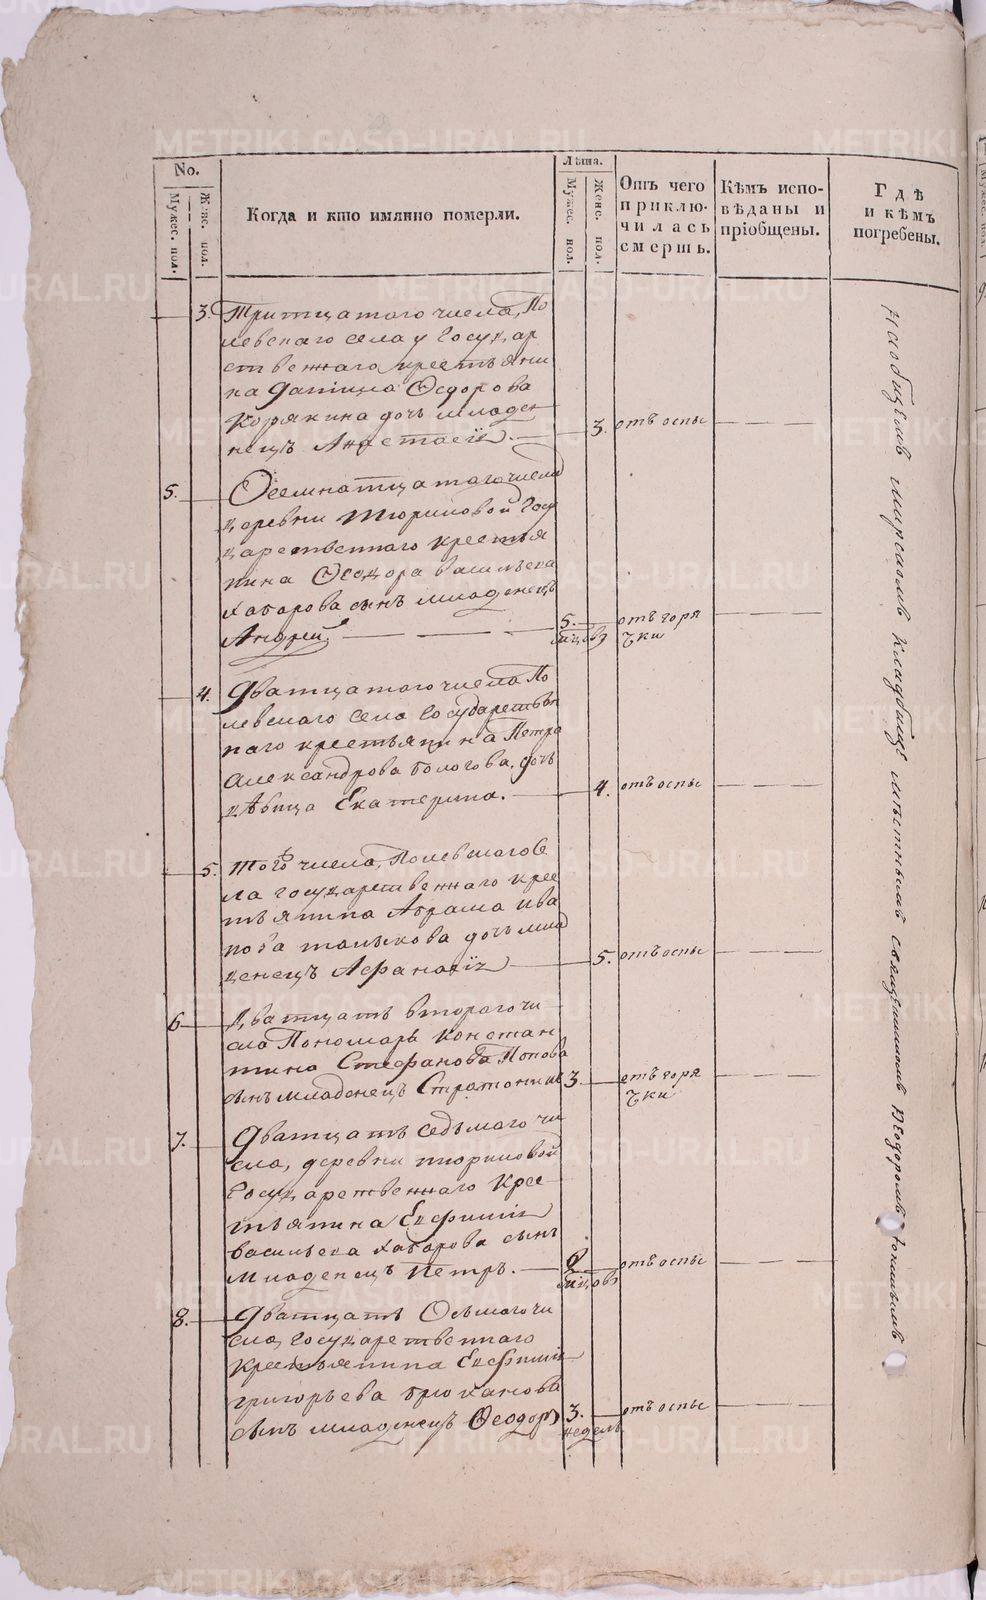 No.
Мужес. пол.
Женс. пол.
Когда и кто имянно померли.
Лѣта.
Мужес. пол.
Женс. пол.
Отъ чего
приклю-
чилась
смерть.
Кѣмъ испо-
вѣданы и
пріобщены.
Гдѣ
и кѣмъ
погребены.
3. Тритцатого числа, По
левского села Государ
ственнаго крестьяни
на Θедорова
Корякина дочь младе
нецъ Анастасія. 3. отъ оспы
5. Осемнатцатаго числа
деревни Тюриковой Госу
дарственнаго крестья
нина Θеодора Васильева
Хабарова сынъ младенецъ
Андрей. 5. мцовъ отъ горя
чки
4. Дватцатого числа По
левского села Государствен
наго крестьянина Петра
Александрова Бологова дочь
дѣвица Екатерина. 4. отъ оспы
5. того числа, Полевского се
ла государственнаго крес
тьянина Абрама Ива
нова Талыкова дочь мла
денецъ Афанасія 5. отъ оспы
6. Дватцать втораго чи
сла Пономаря Констан
тина Стефанова Попова
сынъ младенецъ Стратоникъ 3. отъ горя
чки
7. Дватцать седьмаго чи
сла, деревни Тюриковой
Государственнаго Крес
тьянина Евфимія
Васильева Хабарова сынъ
младенецъ Петръ. мцовъ отъ оспы
8. Дватцать Осьмаго чи
сла, Государственнаго
Крестьянина Евфимія
Григорьева Брюханова
сынъ младенецъ Θеодоръ 3. недель отъ оспы
На общемъ кладбище мѣстнымъ священникомъ Θеодоромъ
METRIKI.GASO-URAL.RU